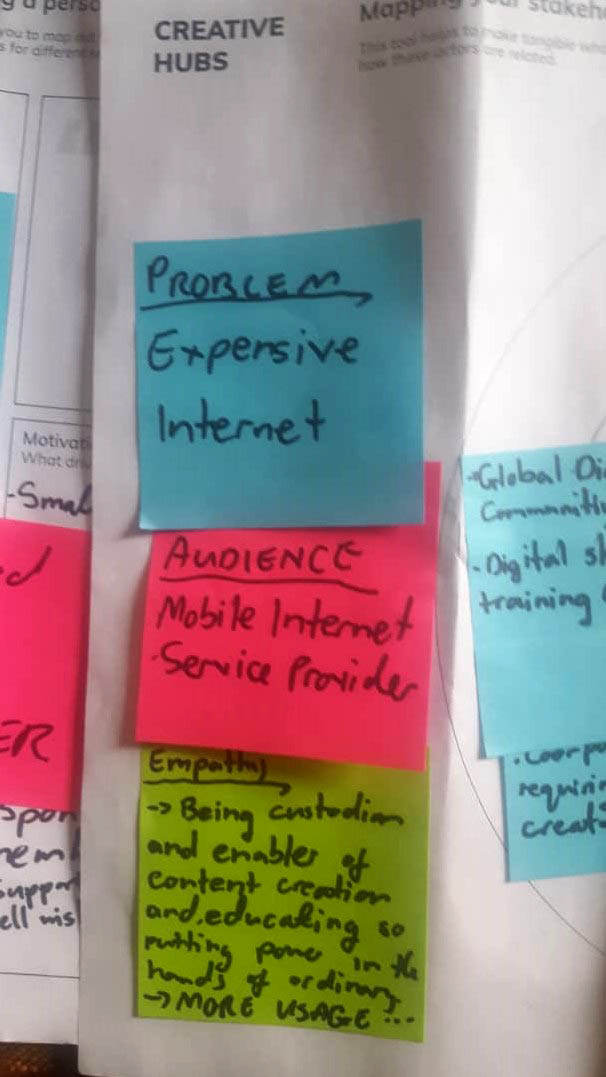 g a perso
you to map out
s for different
CREATIVE
HUBS
Mapping your stakeh
This tool helps to make tangible who
how these actors are related.
PROBLEM
Expensive
Internet
AUDIENCE
Mobile Internet
Service Provider
Empathy
-> Being custodian
and enabler of
content creation
and educating so
putting power in the
hands of ordinary
-> MORE USAGE ...
Motivati
What driv
- Smal
ER
spon
suppor
ell mis
- Global Di
Communiti
- Digital sk
training
. Corpo
requirin
creati